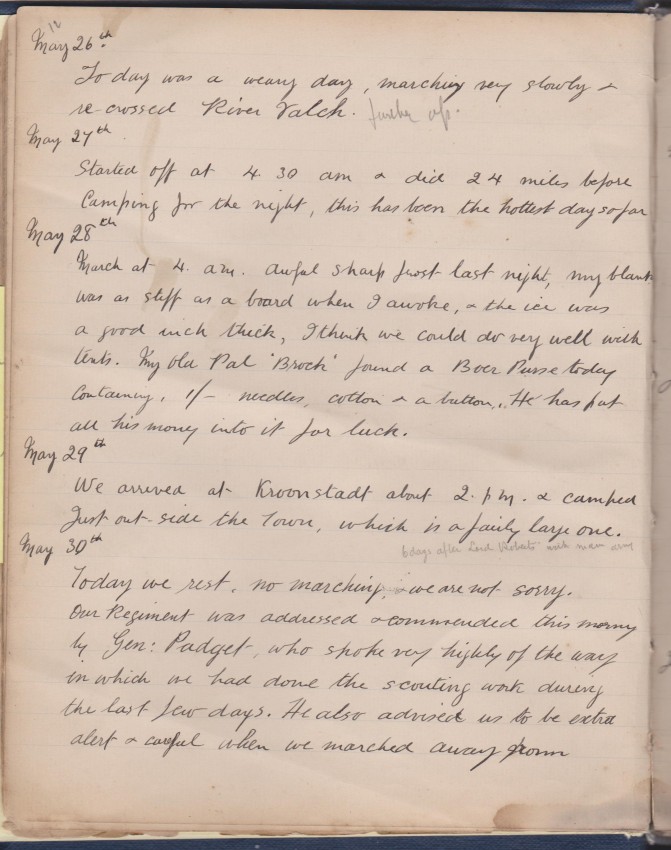 12
May 26th
Today was a weary day, marching very slowly &
re-crossed River Valch. further up.
May 27th
Started off at 4.30 am & did 24 miles before
Camping for the night, this has been the hottest day so far
May 28th
March at 4. am. awful sharp frost last night, my blank
was as stiff as a board when I awoke, & the ice was
a good inch thick, I think we could do very well with
tents. My old Pal 'Brock' found a Boer Purse today
Containing, 1/- needles, cotton & a button,. He has put
all his money into it for luck.
May 29th
We arrived at Kroonstadt about 2. p m. & camped
Just out-side the Town, which is a fairly large one.
6 days after Lord Roberts with main army
May 30th
Today we rest, no marching, & we are not sorry.
Our Regiment was addressed & commended this morning
by Gen: Padget, who spoke very highly of the way
in which we had done the scouting work during
the last few days. He also advised us to be extra
alert & careful when we marched away from